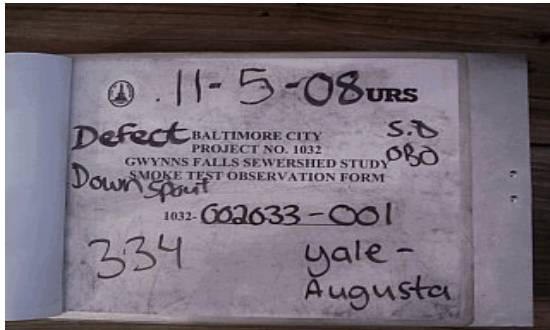 11-5-08 URS
Defect BALTIMORE CITY S.D
PROJECT NO. 1032
GWYNNS FALLS SEWERSHED STUDY OBO
Down SMOKE TEST OBSERVATION FORM
Spout
1032- G02633-001
334 Yale-
Augusta